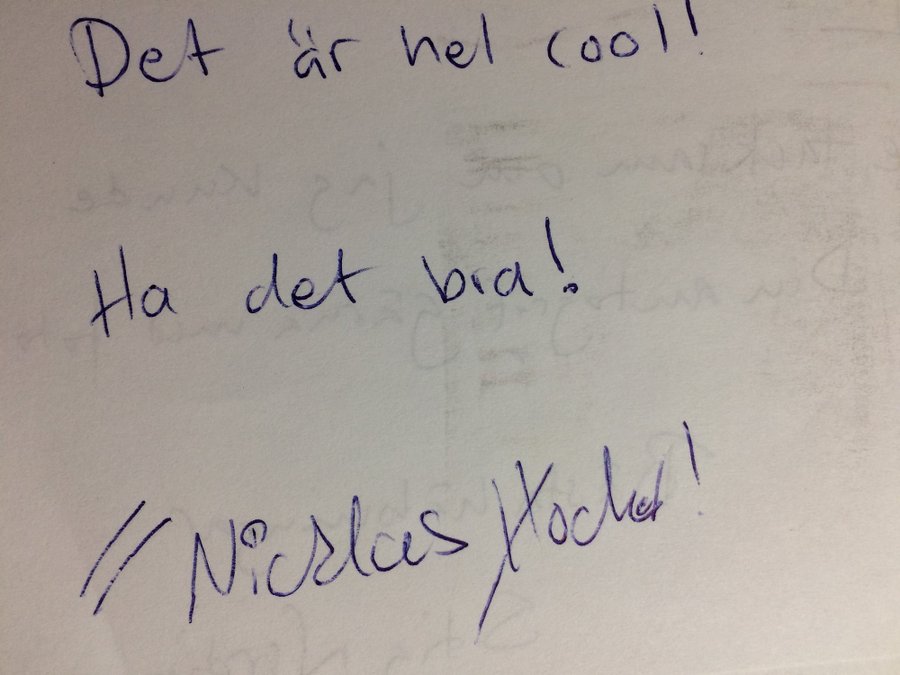 Det är hel cool!
Ha det bra!
// Nicklas